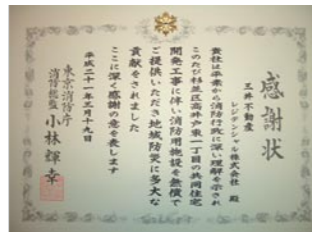 感謝状
三井不動産
レジデンシャル株式会社 殿
貴社は平素から消防行政に深い理解を示され
このたび杉並区高井戸東一丁目の共同住宅
開発工事に伴い消防用施設を無償で
ご提供いただき地域防災に多大な
貢献をされました
ここに深く感謝の意を表します
平成二十一年三月十九日
東京消防庁
消防総監 小林輝幸